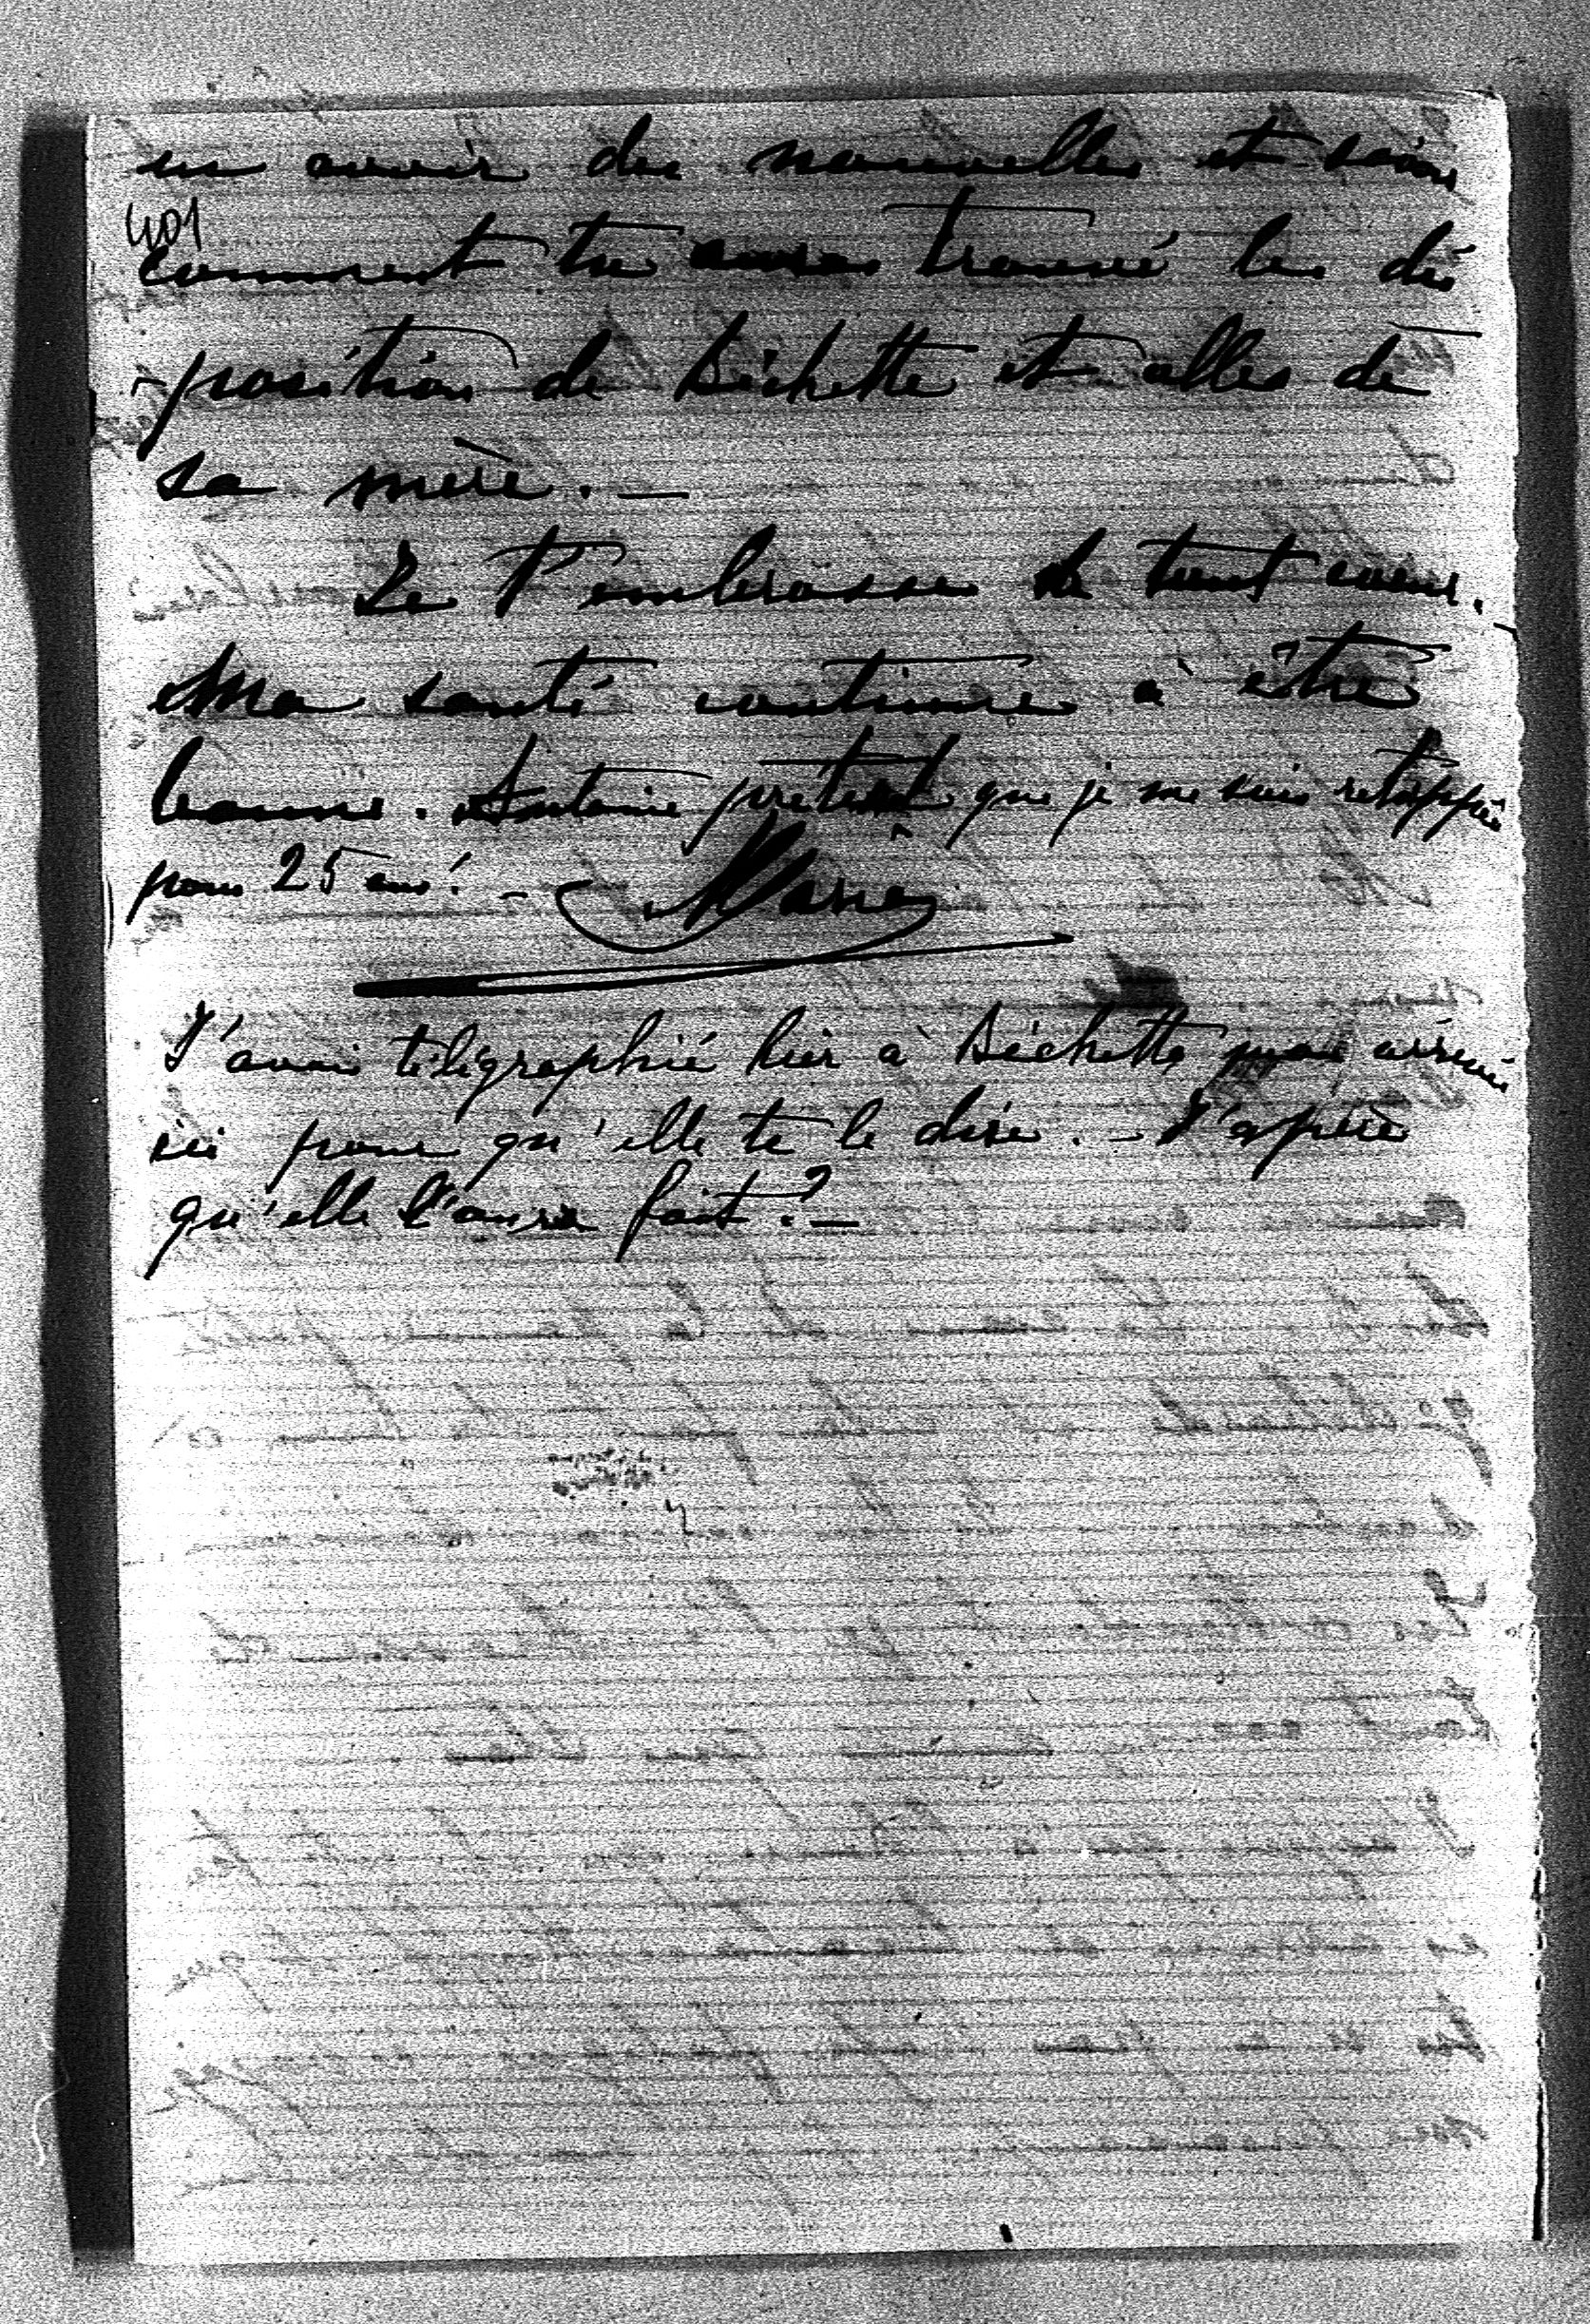 en avoir des nouvelles et savoir
401
comment tu auras trouvé les dis
-position de Béchette et alles de
sa mère. —
Je t'embrasse de tout cœur. -
Ma santé continue à être
bonne. Antoine prétend que je me suis retappée
pour 25 ans! - Marie
J'avais télégraphié hier à Béchette mon arrivée
ici pour qu'elle te le dise. - J'espère
qu'elle l'aura fait? —